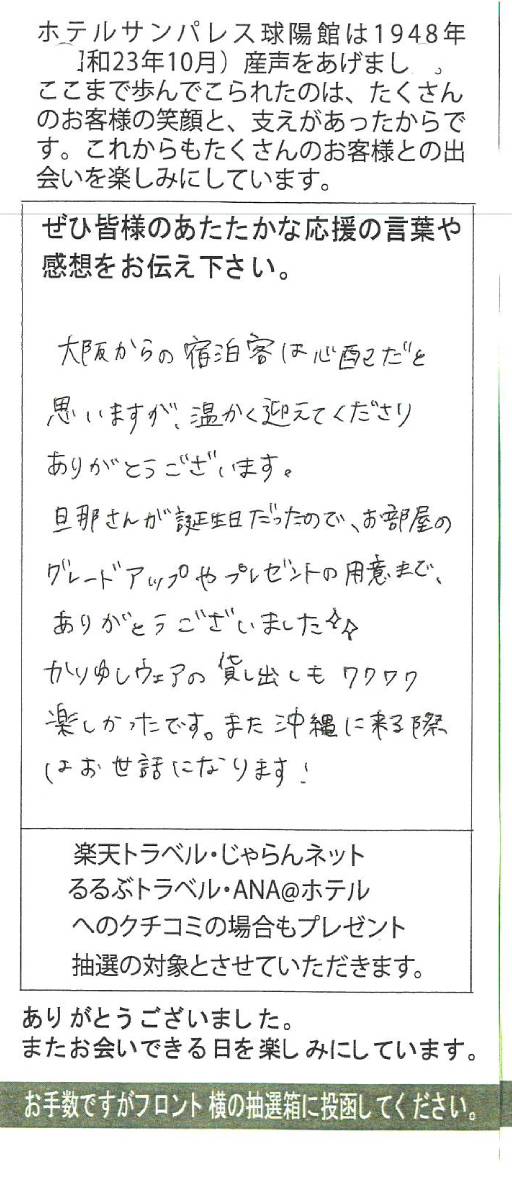 ホテルサンパレス球陽館は1948年
和23年10月）産声をあげまし 。
ここまで歩んでこられたのは、たくさん
のお客様の笑顔と、支えがあったからで
す。これからもたくさんのお客様との出
会いを楽しみにしています。
ぜひ皆様のあたたかな応援の言葉や
感想をお伝え下さい。
大阪からの宿泊客は心配だと
思いますが、温かく迎えてくださり
ありがとうございます。
旦那さんが誕生日だったので、お部屋の
グレードアップやプレゼントの用意まで、
ありがとうございました☆☆
かりゆしウェアの貸し出しもワクワク
楽しかったです。また沖縄に来る際
はお世話になります!
楽天トラベル・じゃらんネット
るるぶトラベル・ANA@ホテル
へのクチコミの場合もプレゼント
抽選の対象とさせていただきます。
ありがとうございました。
またお会いできる日を楽しみにしています。
お手数ですがフロント横の抽選箱に投函してください。